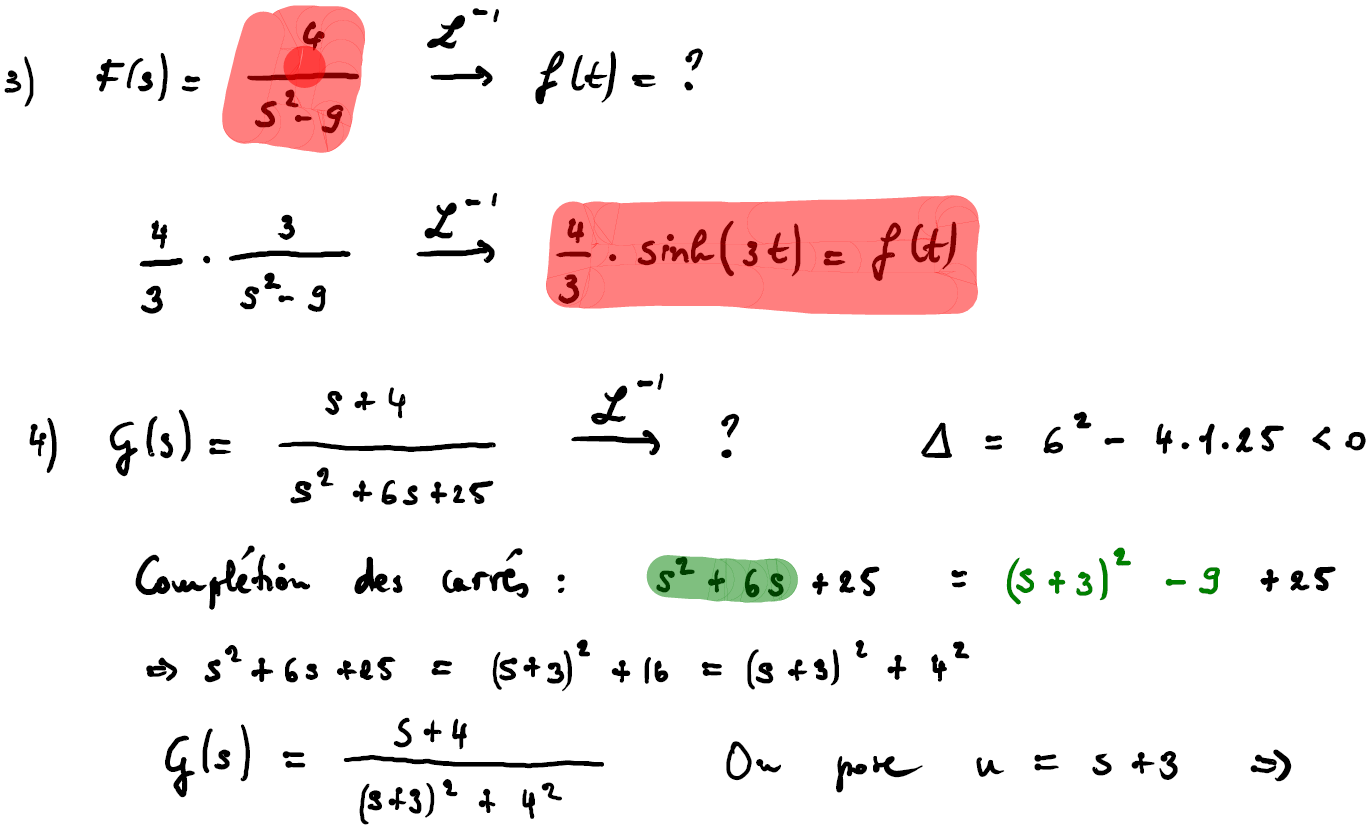 3) F(s) = 4/(s² - 9) →ℒ⁻¹ f(t) = ?
4/3 · 3/(s² - 9) →ℒ⁻¹ 4/3 · sinh(3t) = f(t)
4) G(s) = (s + 4)/(s² + 6s + 25) →ℒ⁻¹ ? Δ = 6² - 4.1.25 < 0
Complétion des carrés : s² + 6s + 25 = (s + 3)² - 9 + 25
⇒ s² + 6s + 25 = (s+3)² + 16 = (s + 3)² + 4²
G(s) = (s + 4)/((s+3)² + 4²) On pose u = s + 3 ⇒